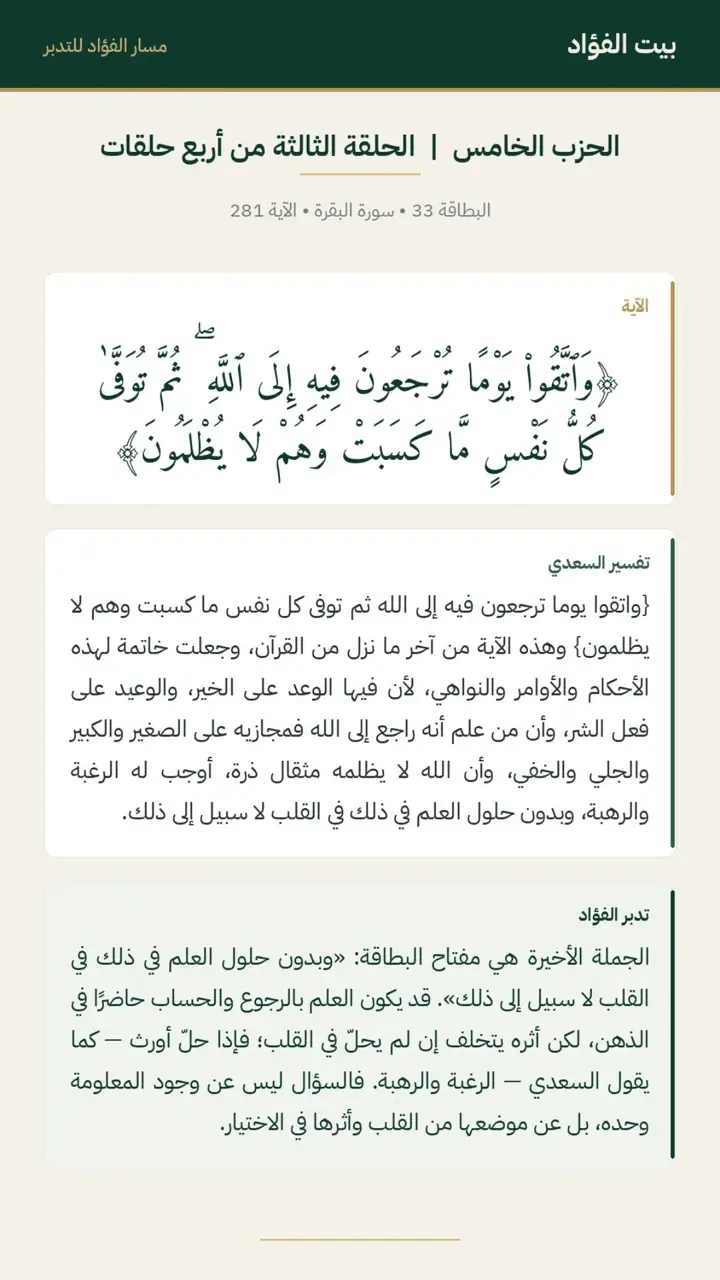 بيت الفؤاد
مسار الفؤاد للتدبر
الحزب الخامس | الحلقة الثالثة من أربع حلقات
البطاقة 33 • سورة البقرة • الآية 281
الآية
﴿وَٱتَّقُوا۟ يَوْمًا تُرْجَعُونَ فِيهِ إِلَى ٱللَّهِ ۖ ثُمَّ تُوَفَّىٰ
كُلُّ نَفْسٍ مَّا كَسَبَتْ وَهُمْ لَا يُظْلَمُونَ﴾
تفسير السعدي
{واتقوا يوما ترجعون فيه إلى الله ثم توفى كل نفس ما كسبت وهم لا
يظلمون} وهذه الآية من آخر ما نزل من القرآن، وجعلت خاتمة لهذه
الأحكام والأوامر والنواهي، لأن فيها الوعد على الخير، والوعيد على
فعل الشر، وأن من علم أنه راجع إلى الله فمجازيه على الصغير والكبير
والجلي والخفي، وأن الله لا يظلمه مثقال ذرة، أوجب له الرغبة
والرهبة، وبدون حلول العلم في ذلك في القلب لا سبيل إلى ذلك.
تدبر الفؤاد
الجملة الأخيرة هي مفتاح البطاقة: «وبدون حلول العلم في ذلك في
القلب لا سبيل إلى ذلك». قد يكون العلم بالرجوع والحساب حاضرًا في
الذهن، لكن أثره يتخلف إن لم يحلّ في القلب؛ فإذا حلّ أورث — كما
يقول السعدي — الرغبة والرهبة. فالسؤال ليس عن وجود المعلومة
وحده، بل عن موضعها من القلب وأثرها في الاختيار.